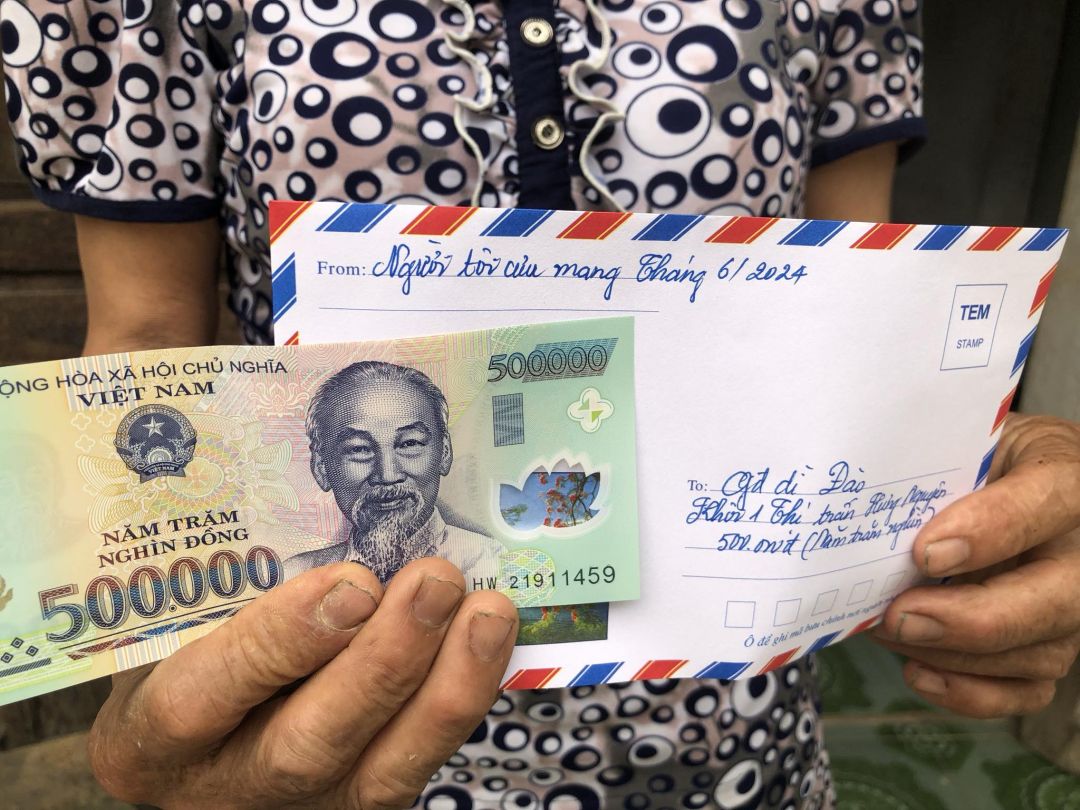 From: Người tôi cứu mạng Tháng 6/2024
TEM
STAMP
To: Gđ dì Đào
Khối 1 Thị trấn Hưng Nguyên
500.000đ (Năm trăm nghìn)
Ô để ghi mã bưu chính nơi người
ỘNG HÒA XÃ HỘI CHỦ NGHĨA
VIỆT NAM
500000
VIỆT NAM
NĂM TRĂM
NGHÌN ĐỒNG
500.000
HW 21911459